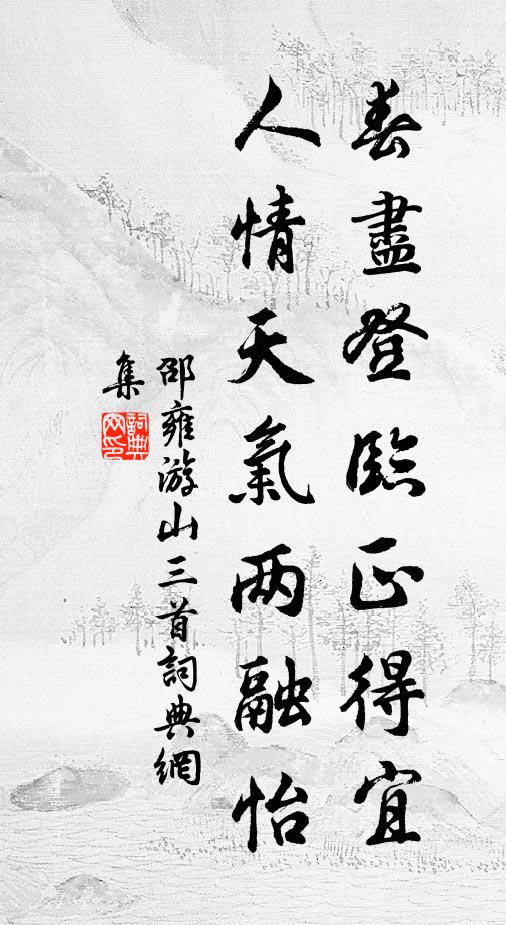 春盡登臨正得宜
人情天氣两融怡
邵雍游山三首詞典網
集
詞典
网印